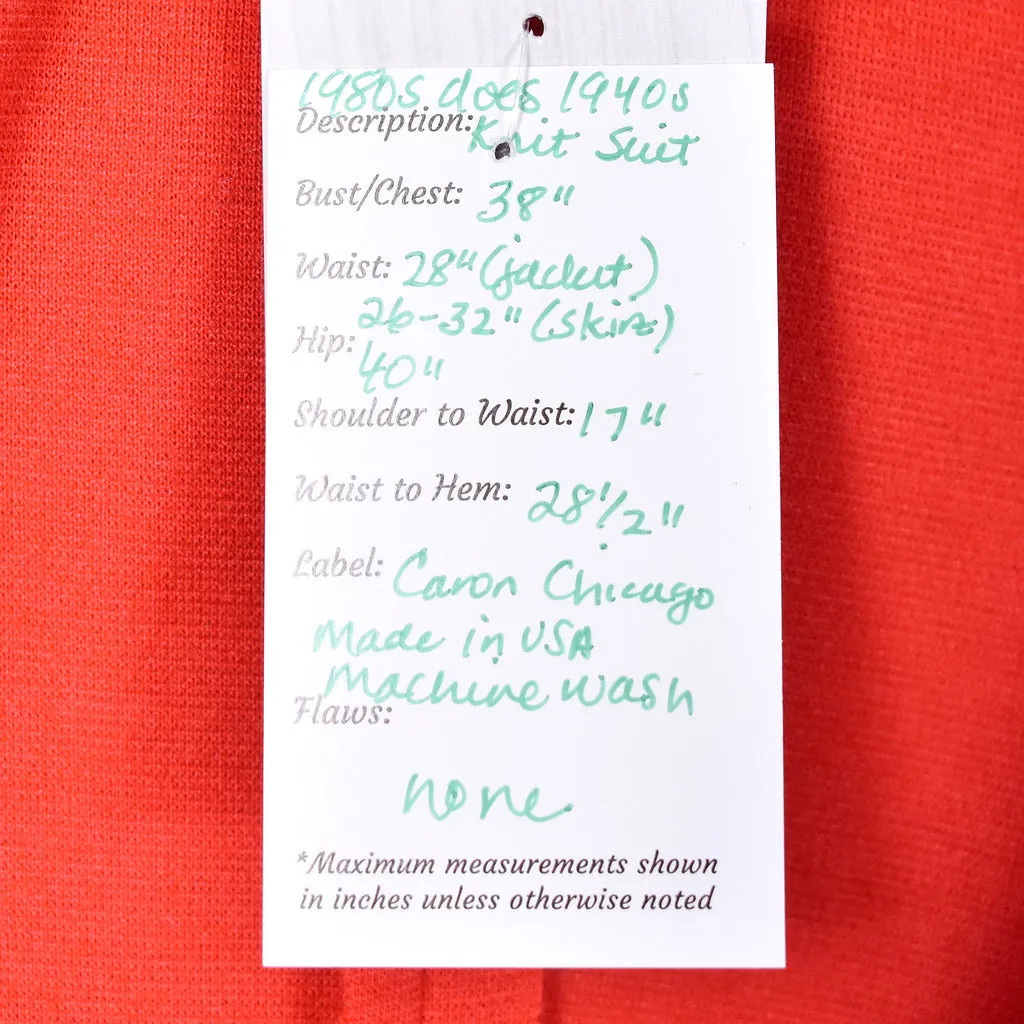 1980s does 1940s
Description: Knit Suit
Bust/Chest: 38"
Waist: 28" (jacket)
26-32" (skirt)
Hip: 40"
Shoulder to Waist: 17"
Waist to Hem: 28 1/2"
Label: Caron Chicago
Made in USA
Machine wash
Flaws:
none
*Maximum measurements shown
in inches unless otherwise noted